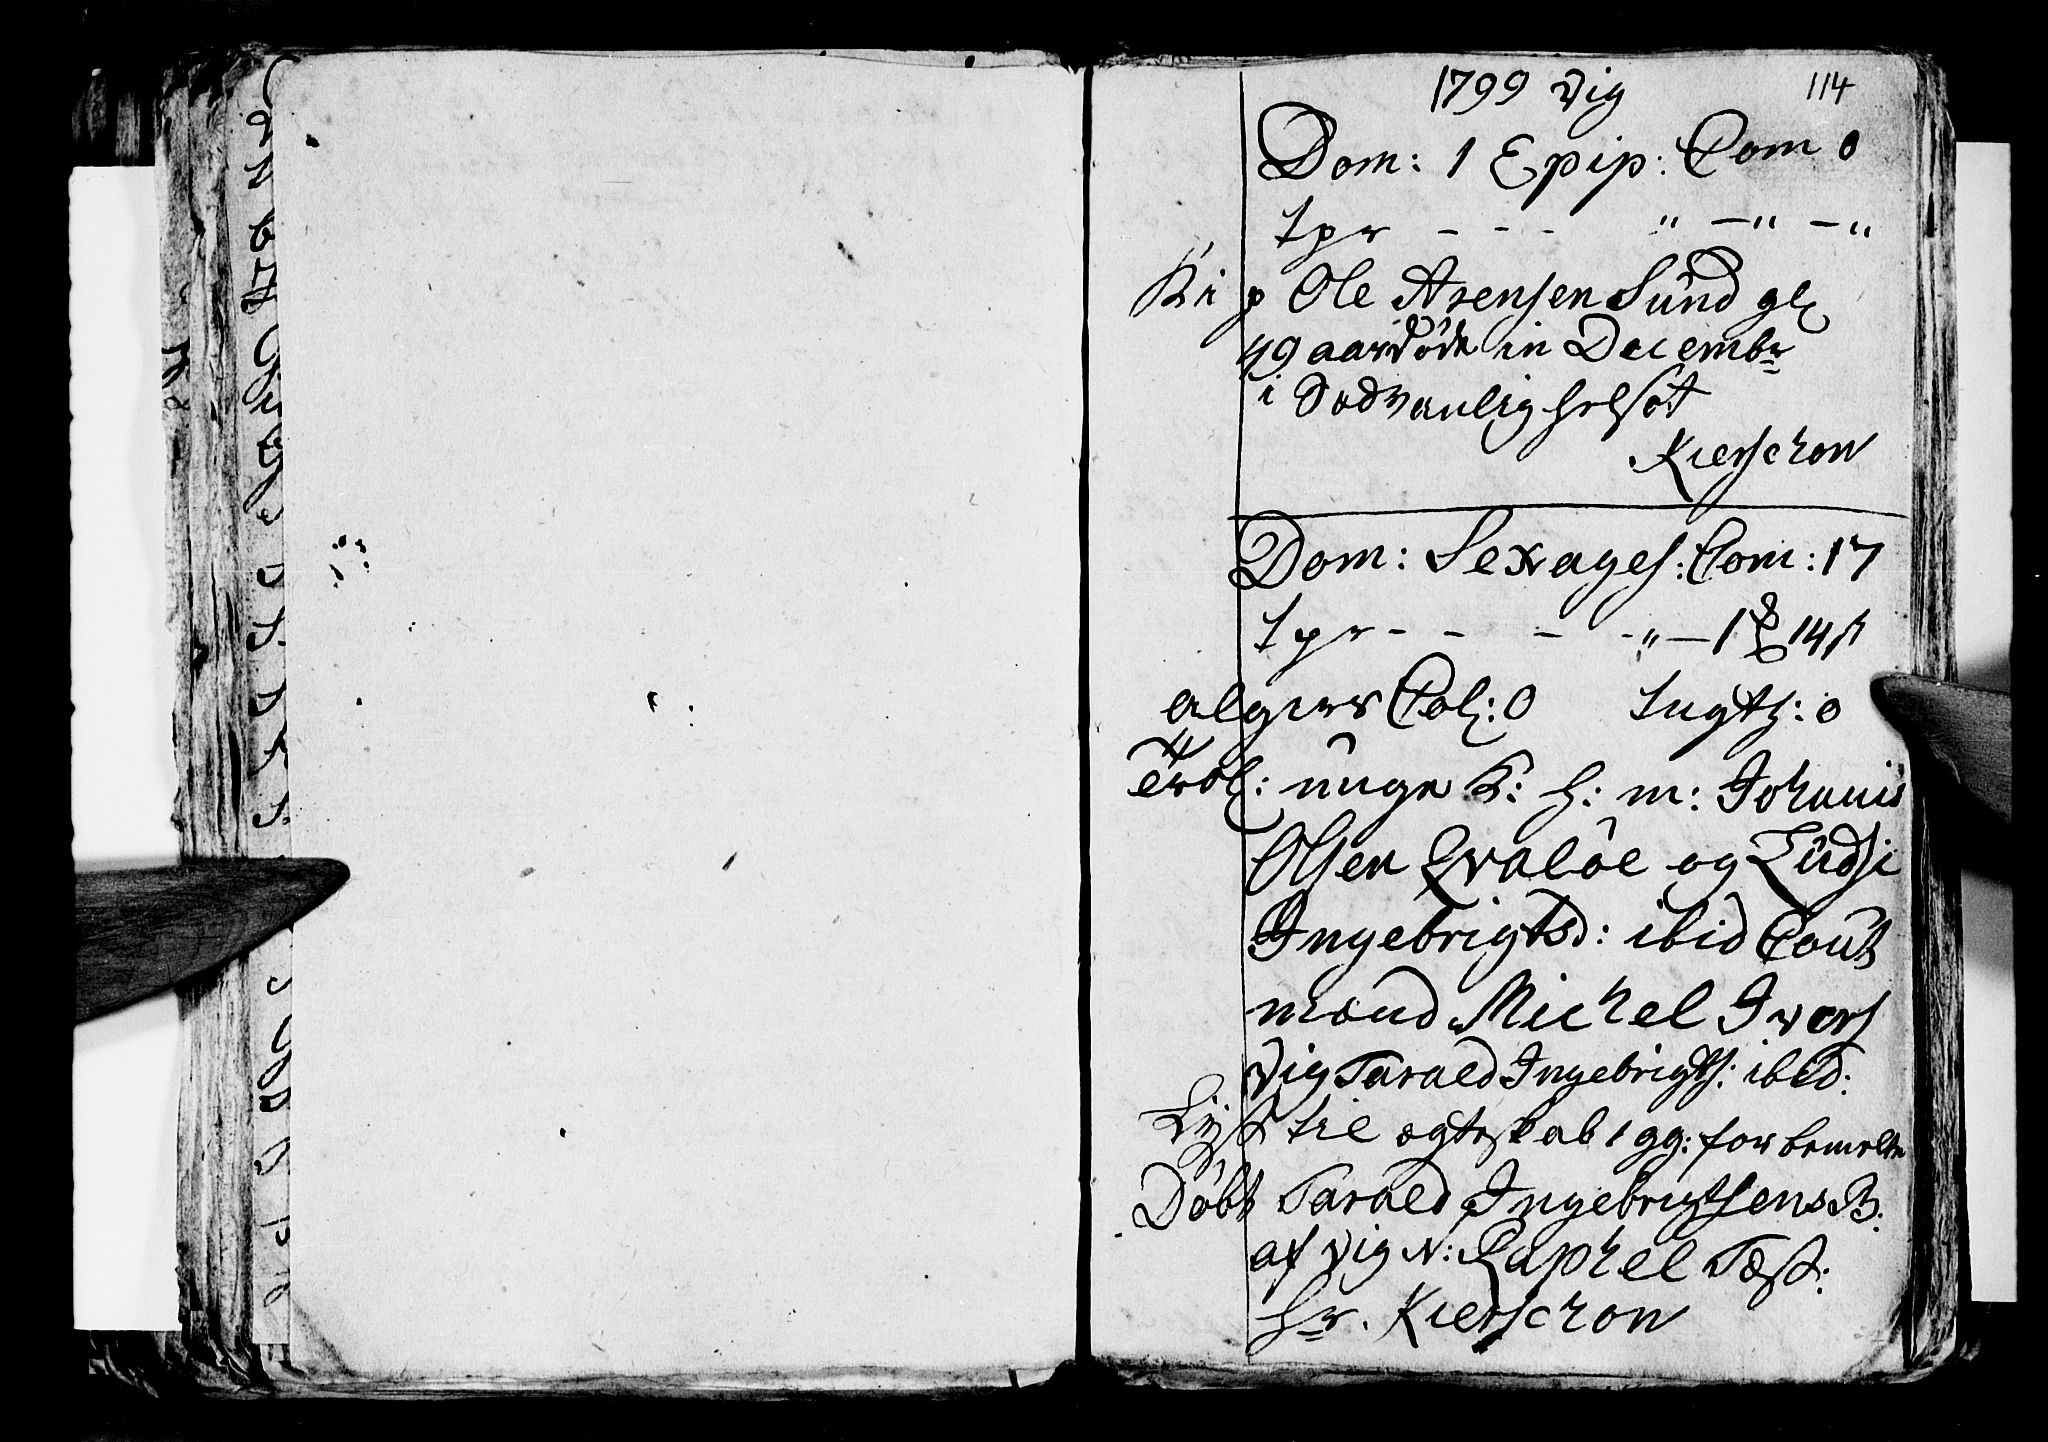 1799 Vig 114
Dom: 1 Epip: Com 0
Tpr - - - " - " - "
Ki p Ole Arensen Sund gl
49 aar Døde in Decembr
i Sædvanlig helsot
Kierschow
Dom: Sexages: Com: 17
Tpr - - - - " - 1 14 ß
algiers Col: 0 Tugth: 0
trol: unge K: h: m: Johanis
Olsen Qvaløe og Ludsi
Ingebrigtsd: ibid Caut
mænd Michel Ivers
Vig Tarald Ingebrigts: ibid:
Lyst til ægteskab 1 gg: for bemelte
Døbt Tarald Ingebrigtsens B:
af Vig N: Raphel Test:
hr. Kierschow